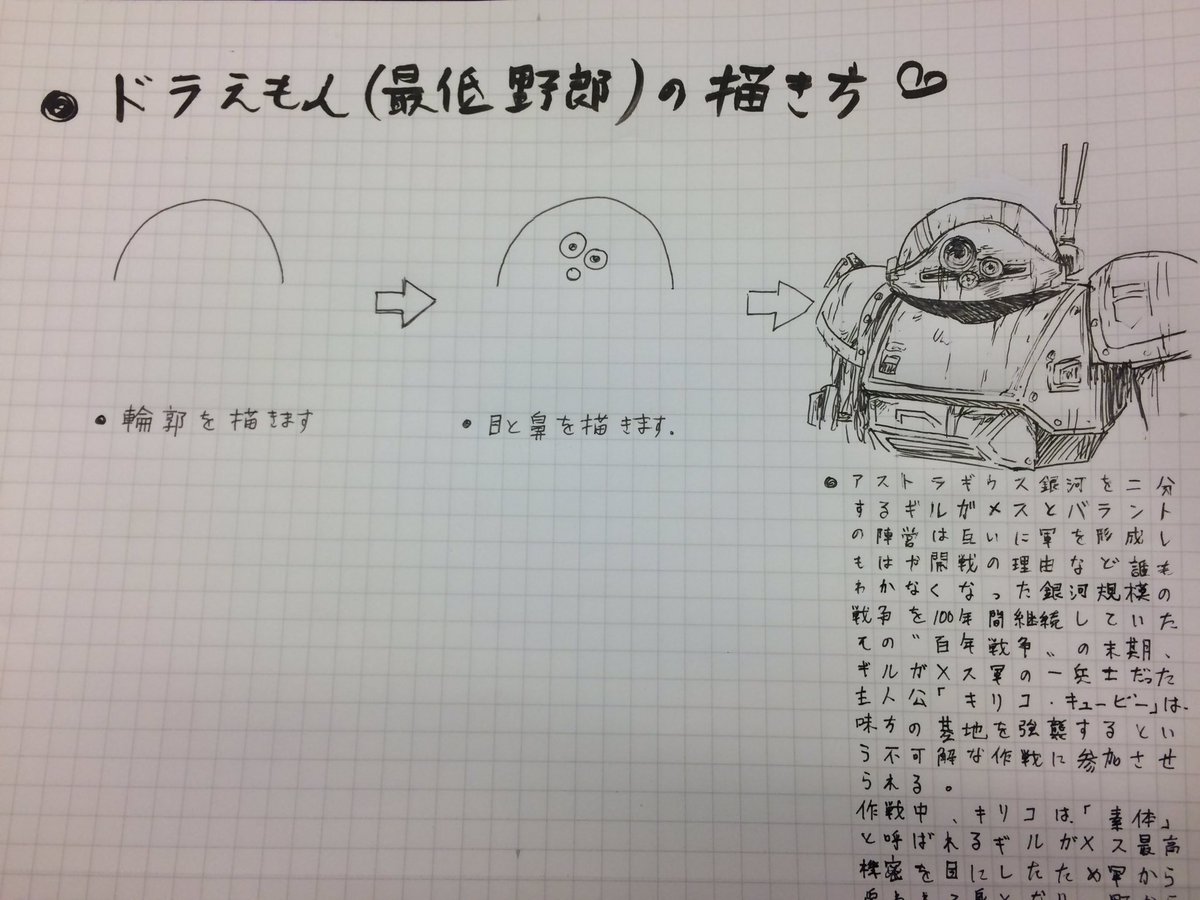 ドラえもん(最低野郎)の描き方♡
輪郭を描きます
目と鼻を描きます.
アストラギウス銀河を二分
するギルガメスとバラント
の陣営は互いに軍を形成し
もはや開戦の理由など誰も
わかなくなった銀河規模の
戦争を100年間継続していた
その〝百年戦争〟の末期、
ギルガメス軍の一兵士だった
主人公「キリコ・キュービー」は、
味方の基地を強襲するとい
う不可解な作戦に参加させ
られる。
作戦中、キリコは、「素体」
と呼ばれるギルガメス最高
機密を目にしたため軍から